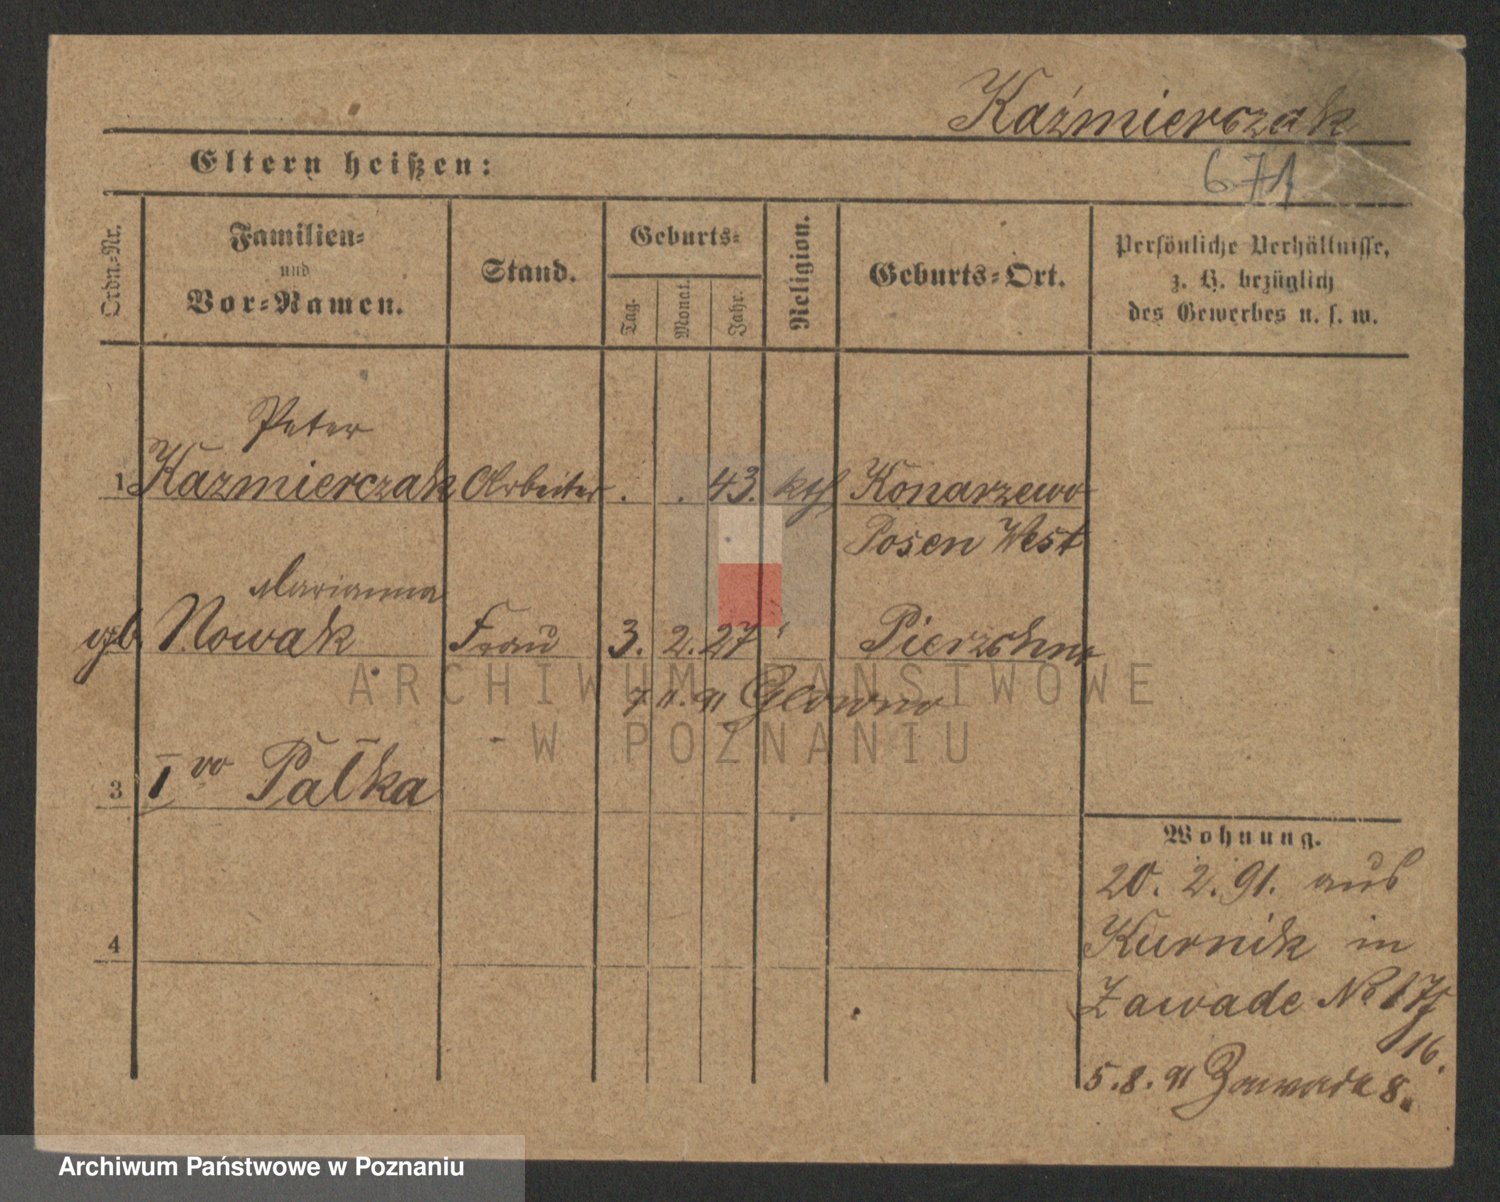 Kaźmierczak
Eltern heißen:
671
Ordn.-Nr.
Familien-
und
Vor-Namen.
Stand.
Geburts-
Tag.
Monat.
Jahr.
Religion.
Geburts-Ort.
Persönliche Verhältnisse,
z. B. bezüglich
des Gewerbes u. s. w.
Peter
1 Kazmierczak Arbeiter . . 43. kth Konarzewo
Posen West
Marianna
gb. Nowak Frau 3. 2. 27 Pierzchno
7 11. 91 Glowno
3 I vo Pałka
4
Wohnung.
20. 2. 91. aus
Kurnik in
Zawade No 17/
16.
5. 8. 91 Zawade 8.
ARCHIWUM PAŃSTWOWE
W POZNANIU
Archiwum Państwowe w Poznaniu